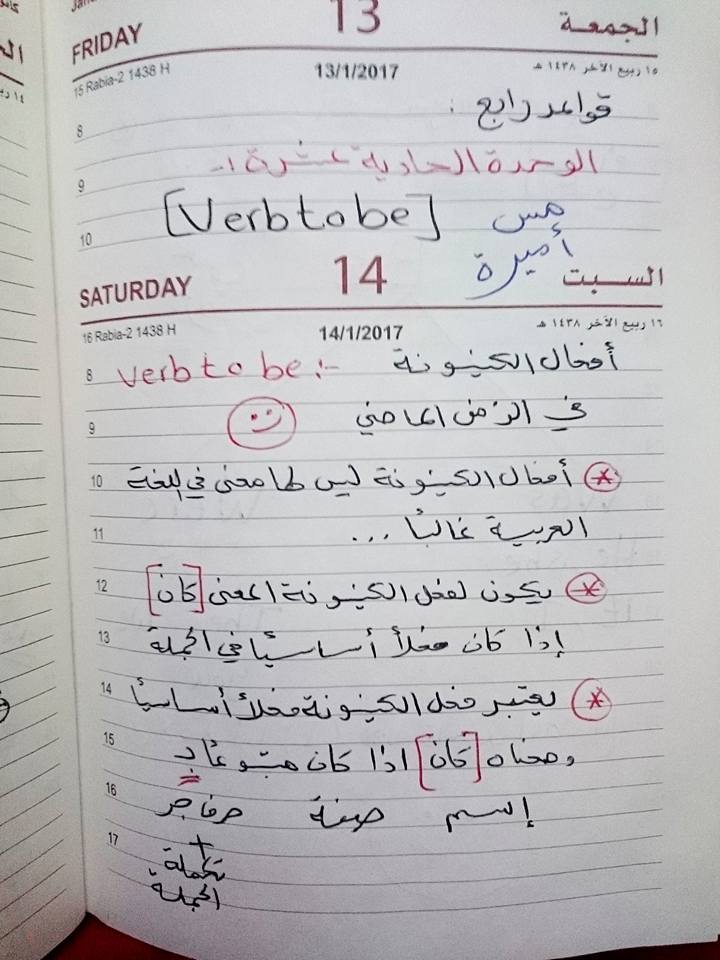 13
FRIDAY الجمعة
15 Rabia-2 1438 H 13/1/2017 ١٥ ربيع الآخر ١٤٣٨ هـ
قواعد رابع :
8
الوحدة الحادية عشرة :-
9
[Verb to be] مس
10
أميرة
SATURDAY 14 السبت
16 Rabia-2 1438 H 14/1/2017 ١٦ ربيع الآخر ١٤٣٨ هـ
8 verb to be :- أفعال الكينونة
9 في الزمن الماضي
10 * أفعال الكينونة ليس لها معنى في اللغة
11 العربية غالباً ...
12 * يكون لفعل الكينونة المعنى [كان]
13 إذا كان فعلاً أساسيًا في الجملة
14 * يعتبر فعل الكينونة فعلاً أساسياً
15 ومعناه [كان] اذا كان متبوعاً بـ
16 إسم صفة حرف جر
17 +
تكملة
الجملة